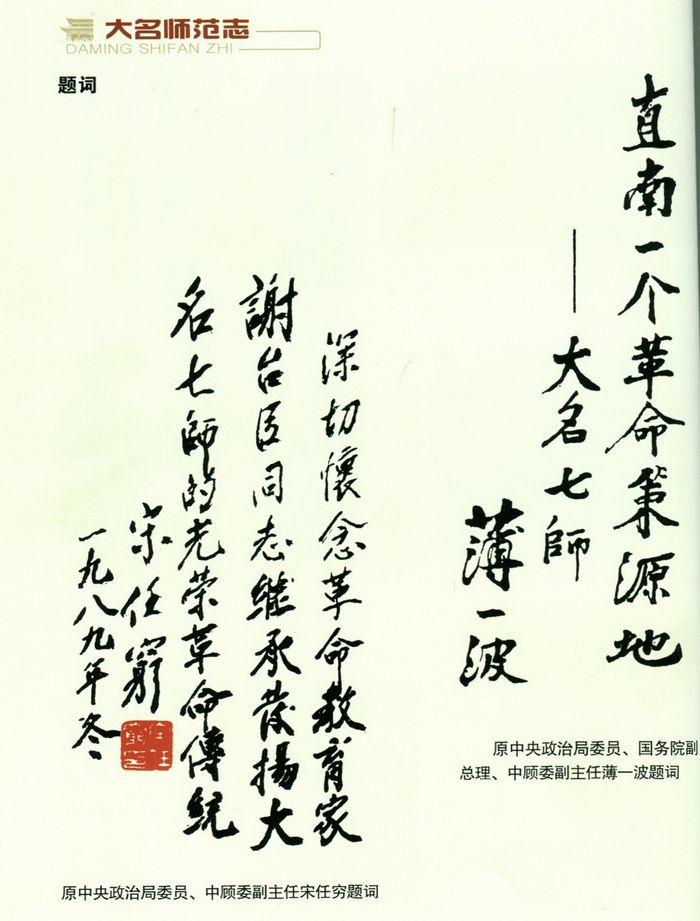 大名师范志
DAMING SHIFAN ZHI
题词
直南一个革命策源地
——大名七師
薄一波
原中央政治局委员、国务院副
总理、中顾委副主任薄一波题词
深切懷念革命教育家
謝台臣同志継承发揚大
名七師的光荣革命傳統
宋任窮
一九八九年冬
原中央政治局委员、中顾委副主任宋任穷题词